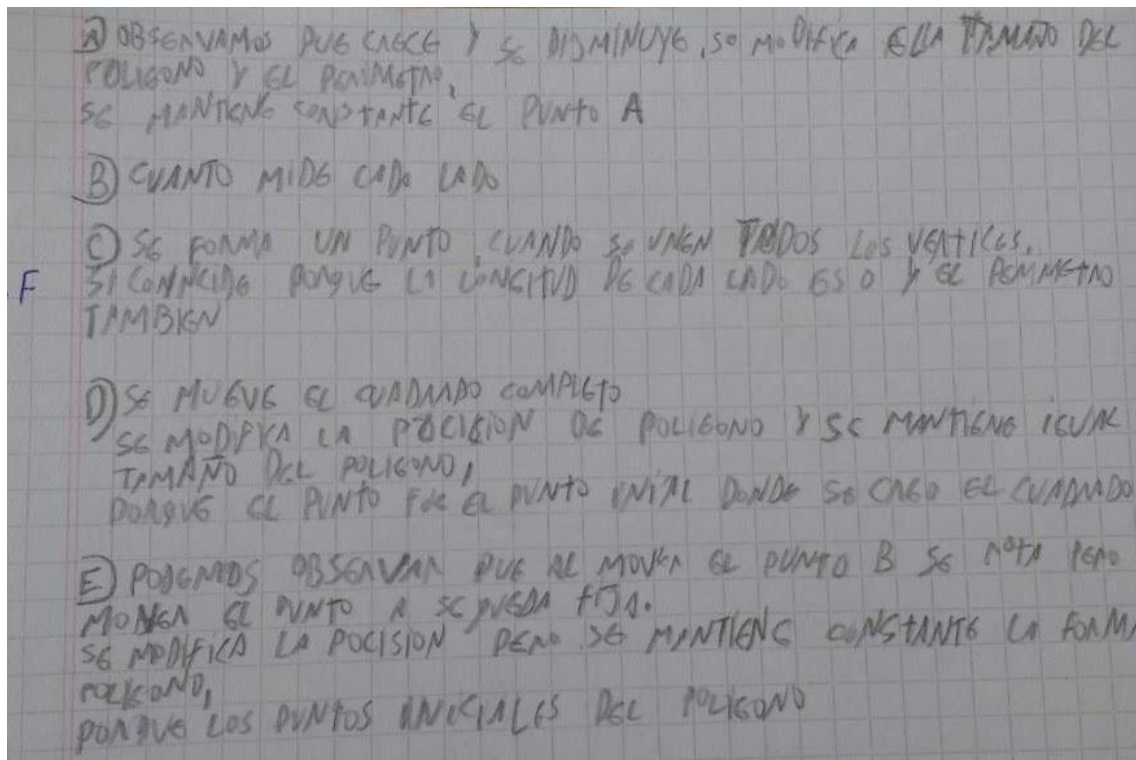 A) OBSERVAMOS QUE CRECE Y SE DISMINUYE, SE MODIFICA EL TAMAÑO DEL
POLIGONO Y EL PERIMETRO,
SE MANTIENE CONSTANTE EL PUNTO A
B) CUANTO MIDE CADO LADO
C) SE FORMA UN PUNTO, CUANDO SE UNEN TODOS LOS VERTICES.
F SI COINCIDE PORQUE LA LONGITUD DE CADA LADO ES 0 Y EL PERIMETRO
TAMBIEN
D) SE MUEVE EL CUADRADO COMPLETO
SE MODIFICA LA POCICION DE POLIGONO Y SE MANTIENE IGUAL
TAMAÑO DEL POLIGONO,
PORQUE EL PUNTO FUE EL PUNTO INIIAL DONDE SE CREO EL CUADRADO
E) PODEMOS OBSERVAR QUE AL MOVER EL PUNTO B SE ROTA PERO
MOVER EL PUNTO A SE QUEDA FIJA.
SE MODIFICA LA POCISION PERO SE MANTIENE CONSTANTE LA FORMA
POLIGONO,
PORQUE LOS PUNTOS INICIALES DEL POLIGONO